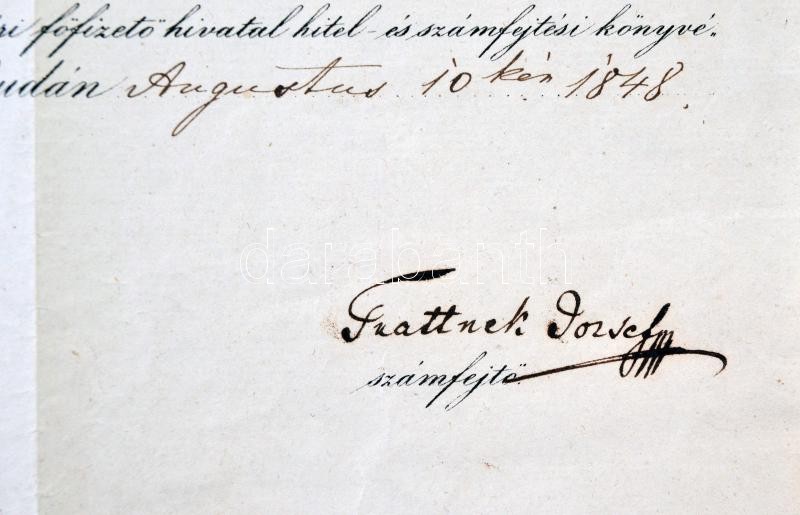 ri főfizető hivatal hitel- és számfejtési könyvé„
udán Augustus 10 kén 1848.
darabanth
Trattnek Jozsef
számfejtő